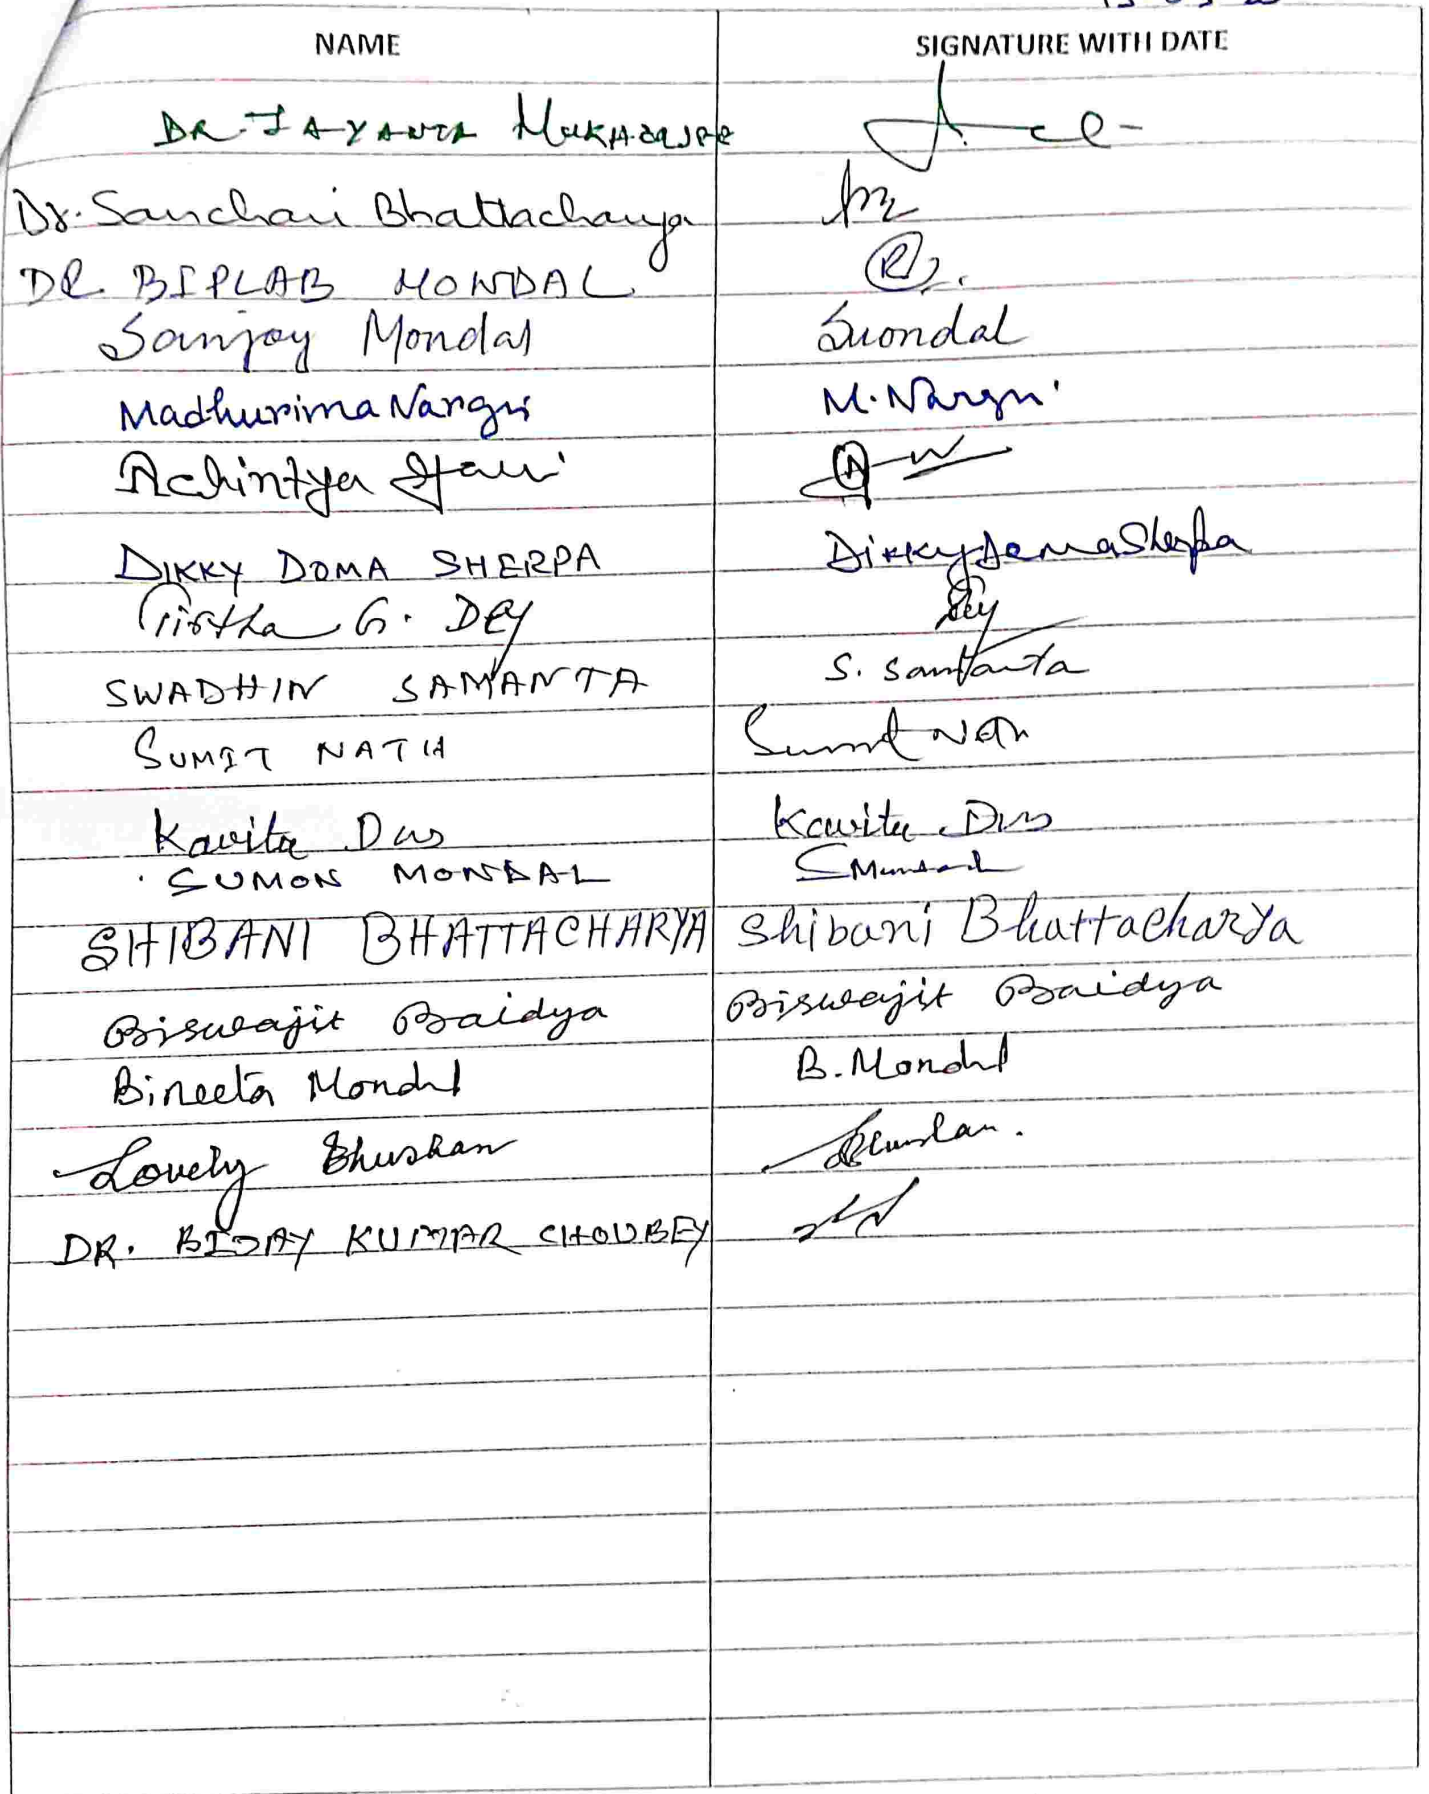 NAME SIGNATURE WITH DATE
DR. JAYANTA MUKHERJEE
Dr. Sanchari Bhattacharya
DR. BIPLAB MONDAL
Sanjoy Mondal
Madhurima Nargis M. Nargis
Achintya
DIKKY DOMA SHERPA Dikky Doma Sherpa
Tirtha G. DEY Dey
SWADHIN SAMANTA S. Samanta
SUMIT NATH Sumit Nath
Kavita Das Kavita Das
SUMON MONDAL
SHIBANI BHATTACHARYA Shibani Bhattacharya
Biswajit Baidya Biswajit Baidya
Bineeta Mondal B. Mondal
Lovely Bhushan Bhushan.
DR. BIJAY KUMAR CHOUBEY